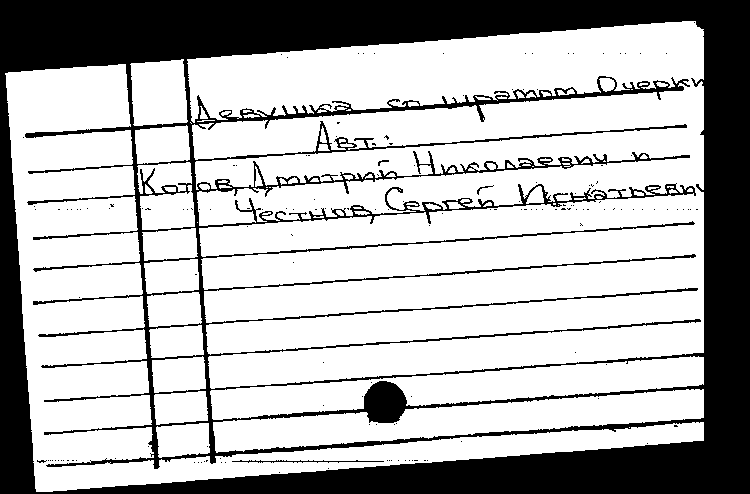 Девушка со шрамом Очерки
Авт.:
Котов, Дмитрий Николаевич и
Честнов, Сергей Игнатьевич